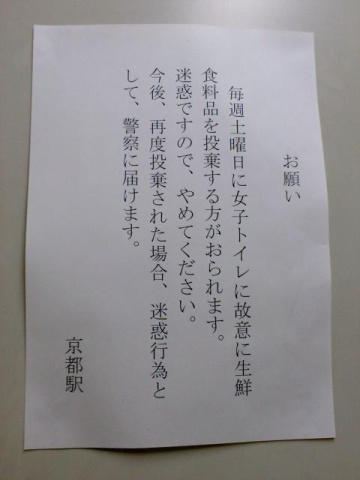 お願い
毎週土曜日に女子トイレに故意に生鮮
食料品を投棄する方がおられます。
迷惑ですので、やめてください。
今後、再度投棄された場合、迷惑行為と
して、警察に届けます。
京都駅